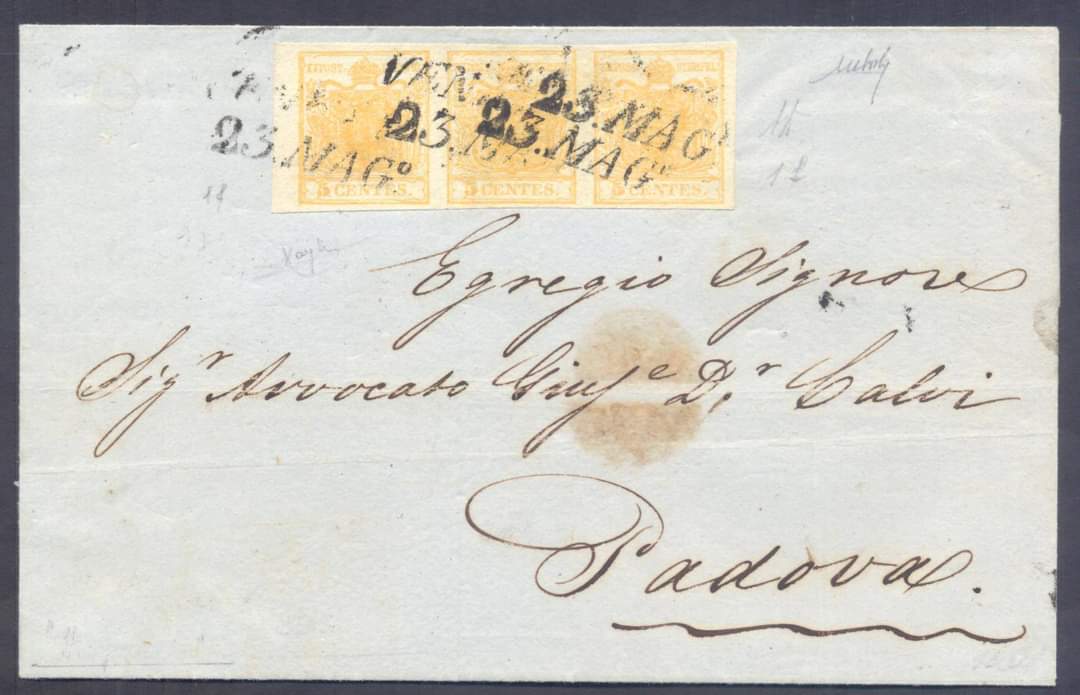 VEN
23. MAG°
23. M
23. MAG°
23. MAG°
5 CENTES. 5 CENTES. 5 CENTES.
Egregio Signore
Sig.r Avvocato Giuse D.r Calvi
Padova.